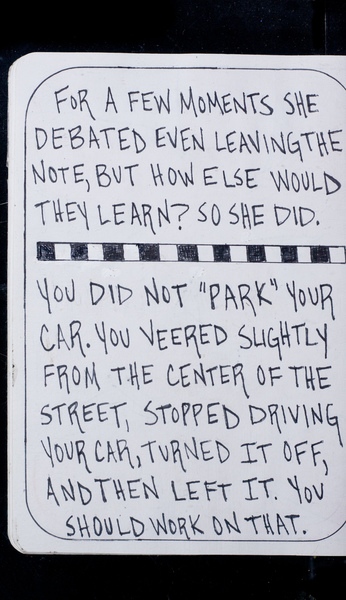 FOR A FEW MOMENTS SHE
DEBATED EVEN LEAVING THE
NOTE, BUT HOW ELSE WOULD
THEY LEARN? SO SHE DID.
YOU DID NOT "PARK" YOUR
CAR. YOU VEERED SLIGHTLY
FROM THE CENTER OF THE
STREET, STOPPED DRIVING
YOUR CAR, TURNED IT OFF,
AND THEN LEFT IT. YOU
SHOULD WORK ON THAT.